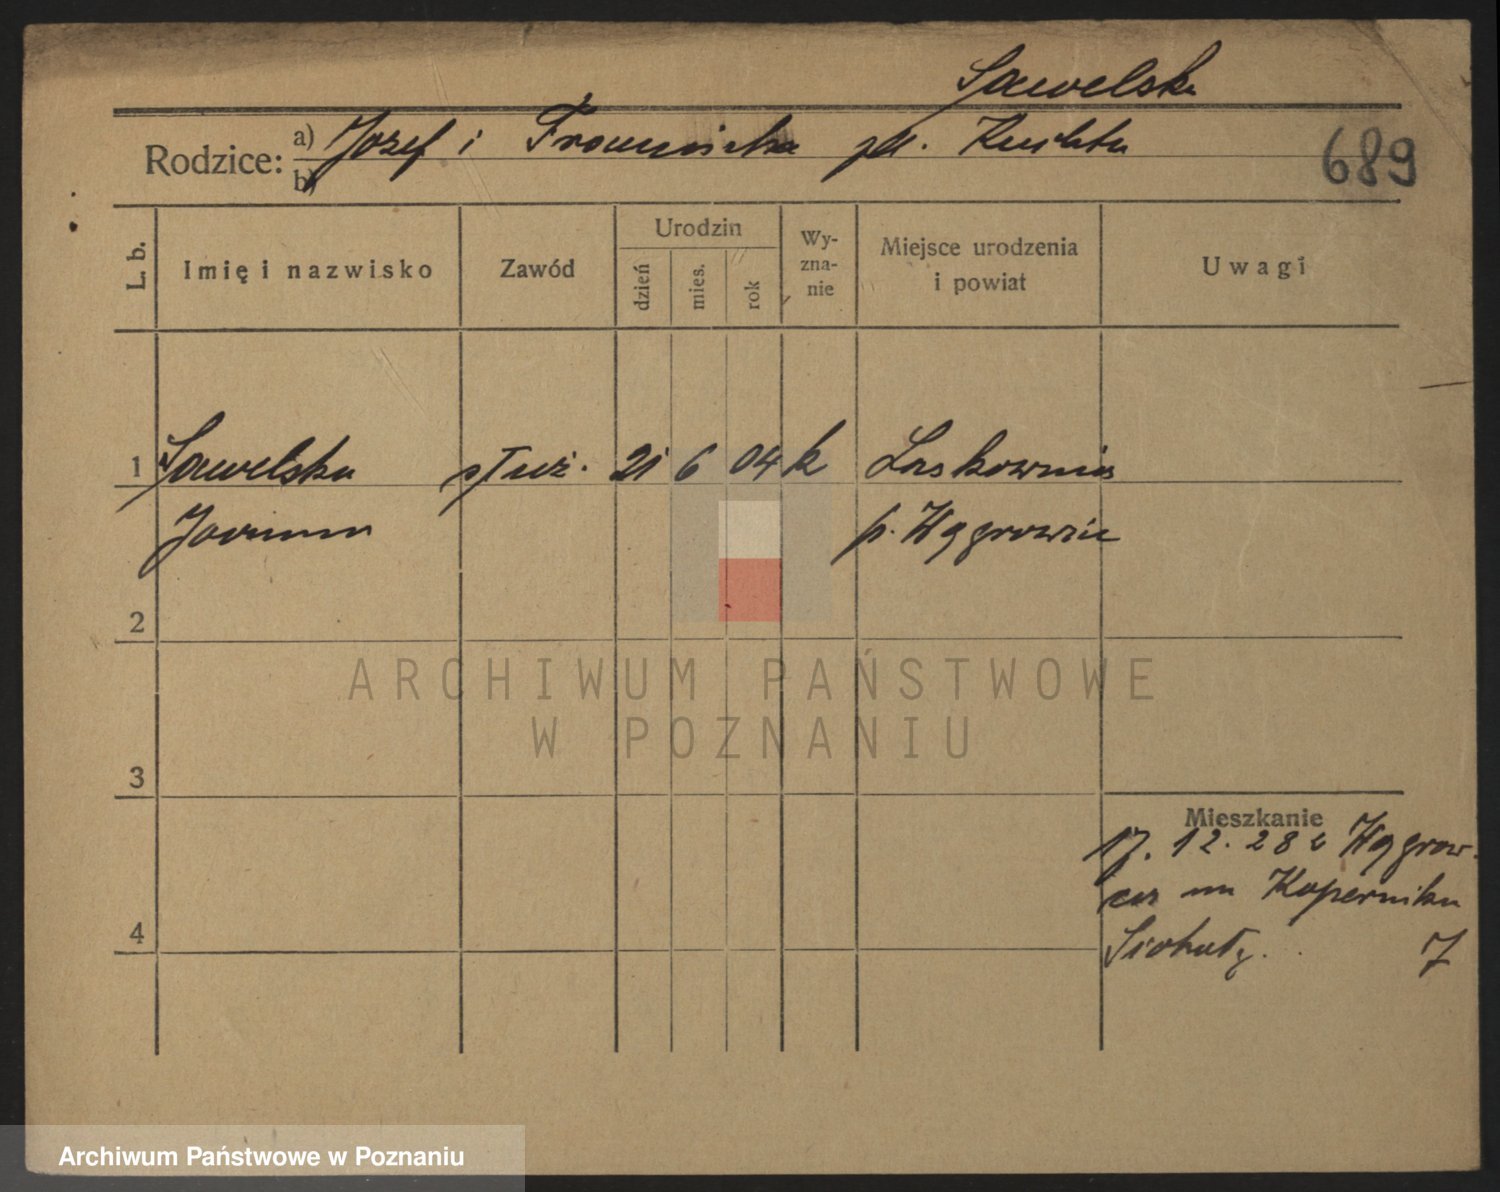 Sawelska
Rodzice: a) Józef i Franciszka
b)
689
L. b.
Imię i nazwisko
Zawód
Urodzin
dzień
mies.
rok
Wy-
zna-
nie
Miejsce urodzenia
i powiat
Uwagi
1 Sawelska służ. 21 6 04 k Laskownia
Joanna p. Wągrowiec
2
3
4
Mieszkanie
17. 12. 28 z Wągrow-
ca na Kopernika
7
ARCHIWUM PAŃSTWOWE
W POZNANIU
Archiwum Państwowe w Poznaniu